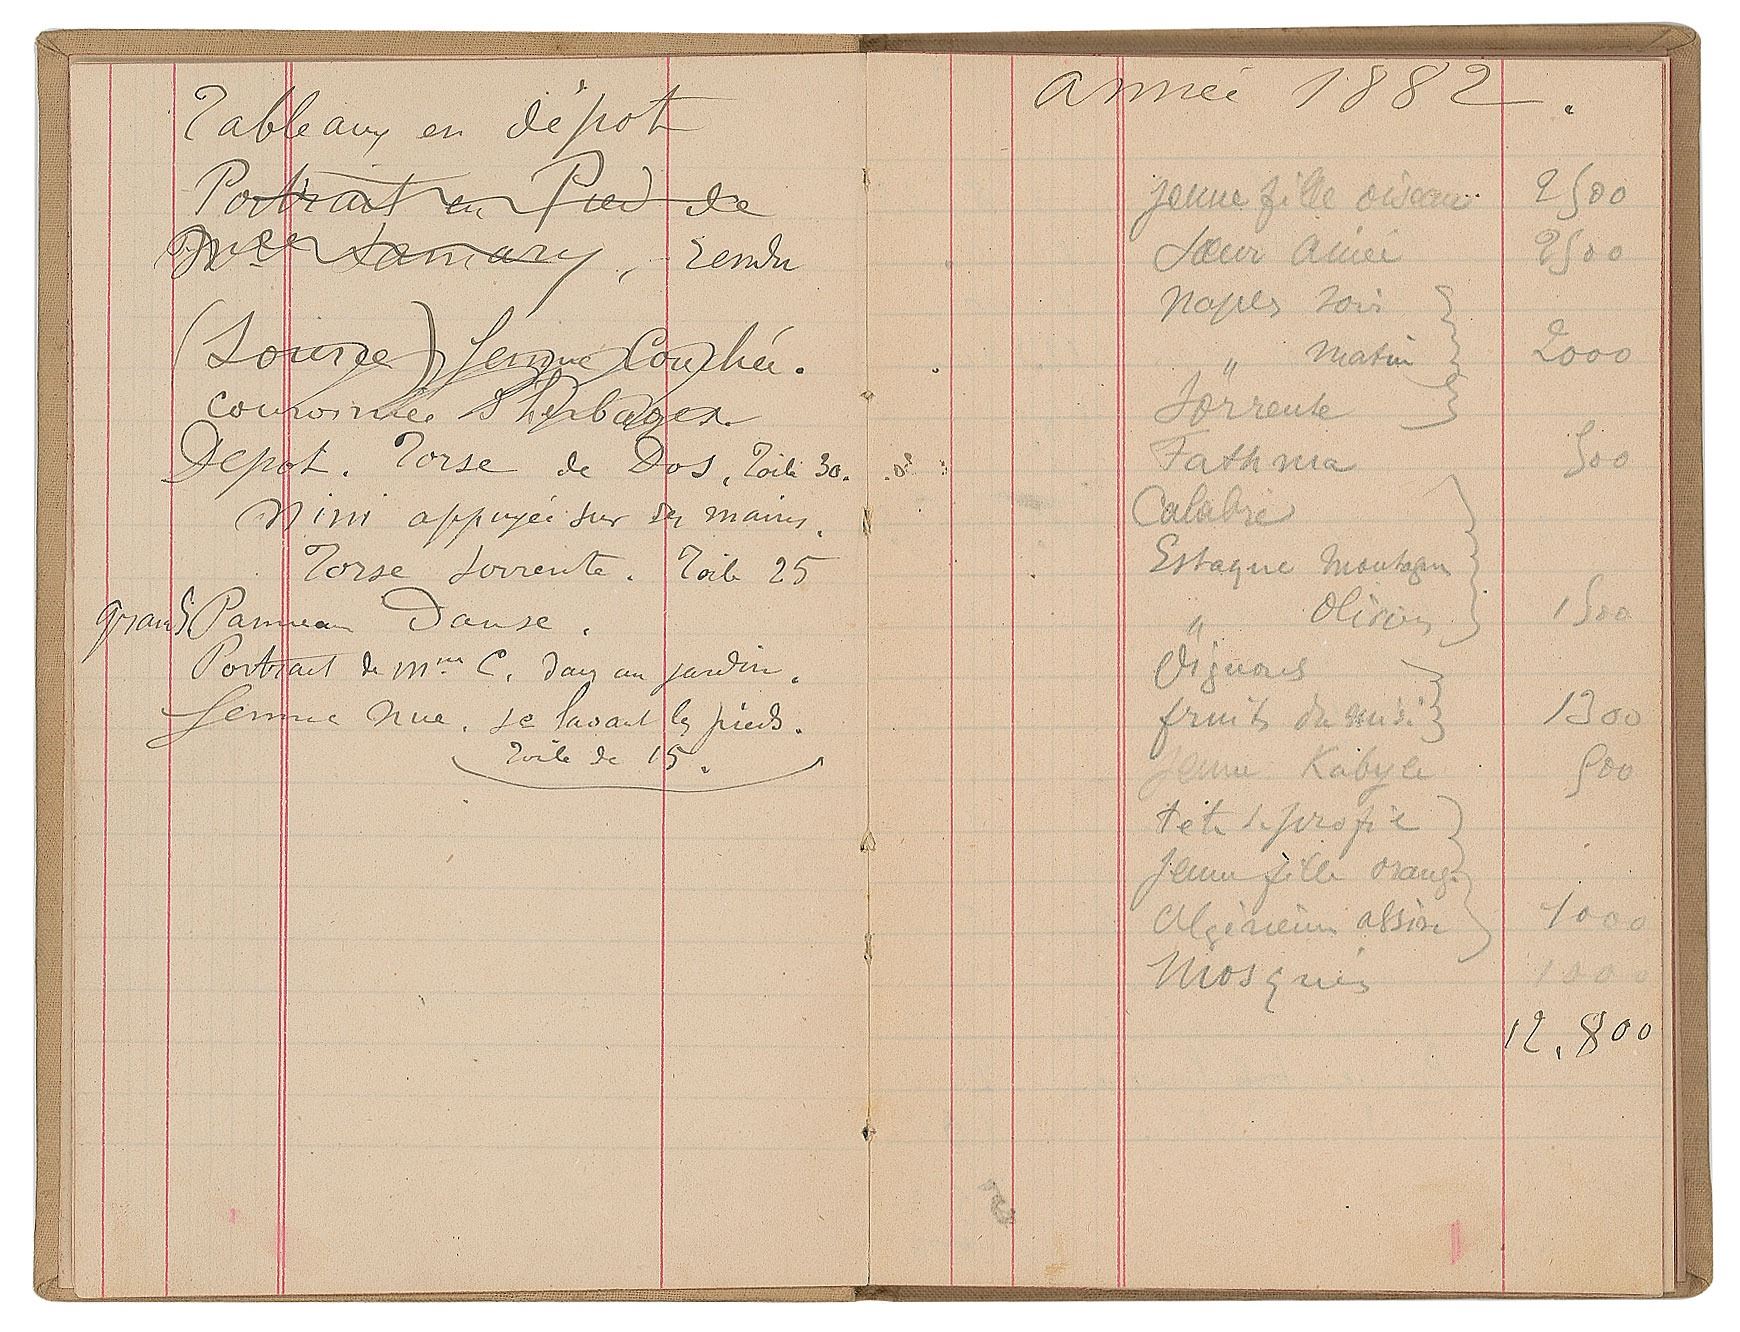 Tableaux en dépôt
Portrait en Pied de
Mlle Samary, rendu
(Source) femme Couchée.
couronnée d'herbages.
Depot. Torse de Dos, Toile 30.
Nini appuyée sur ses mains.
Torse Sorrente. Toile 25
grand Panneau Danse.
Portrait de Mme C. dans un jardin.
femme nue. se lavant les pieds.
Toile de 15.
année 1882.
jeune fille oiseau 2500
Sœur Aimée 2500
Naples soir
" matin 2000
Sorrente
Fathma 500
Calabre
Estaque Montagne
" Oliviers 1500
Oignons
fruits du midi 1300
Jeune Kabyle 500
tête de profil
jeune fille orange
Algérienne assise 1000
Mosquée 1000
12.800